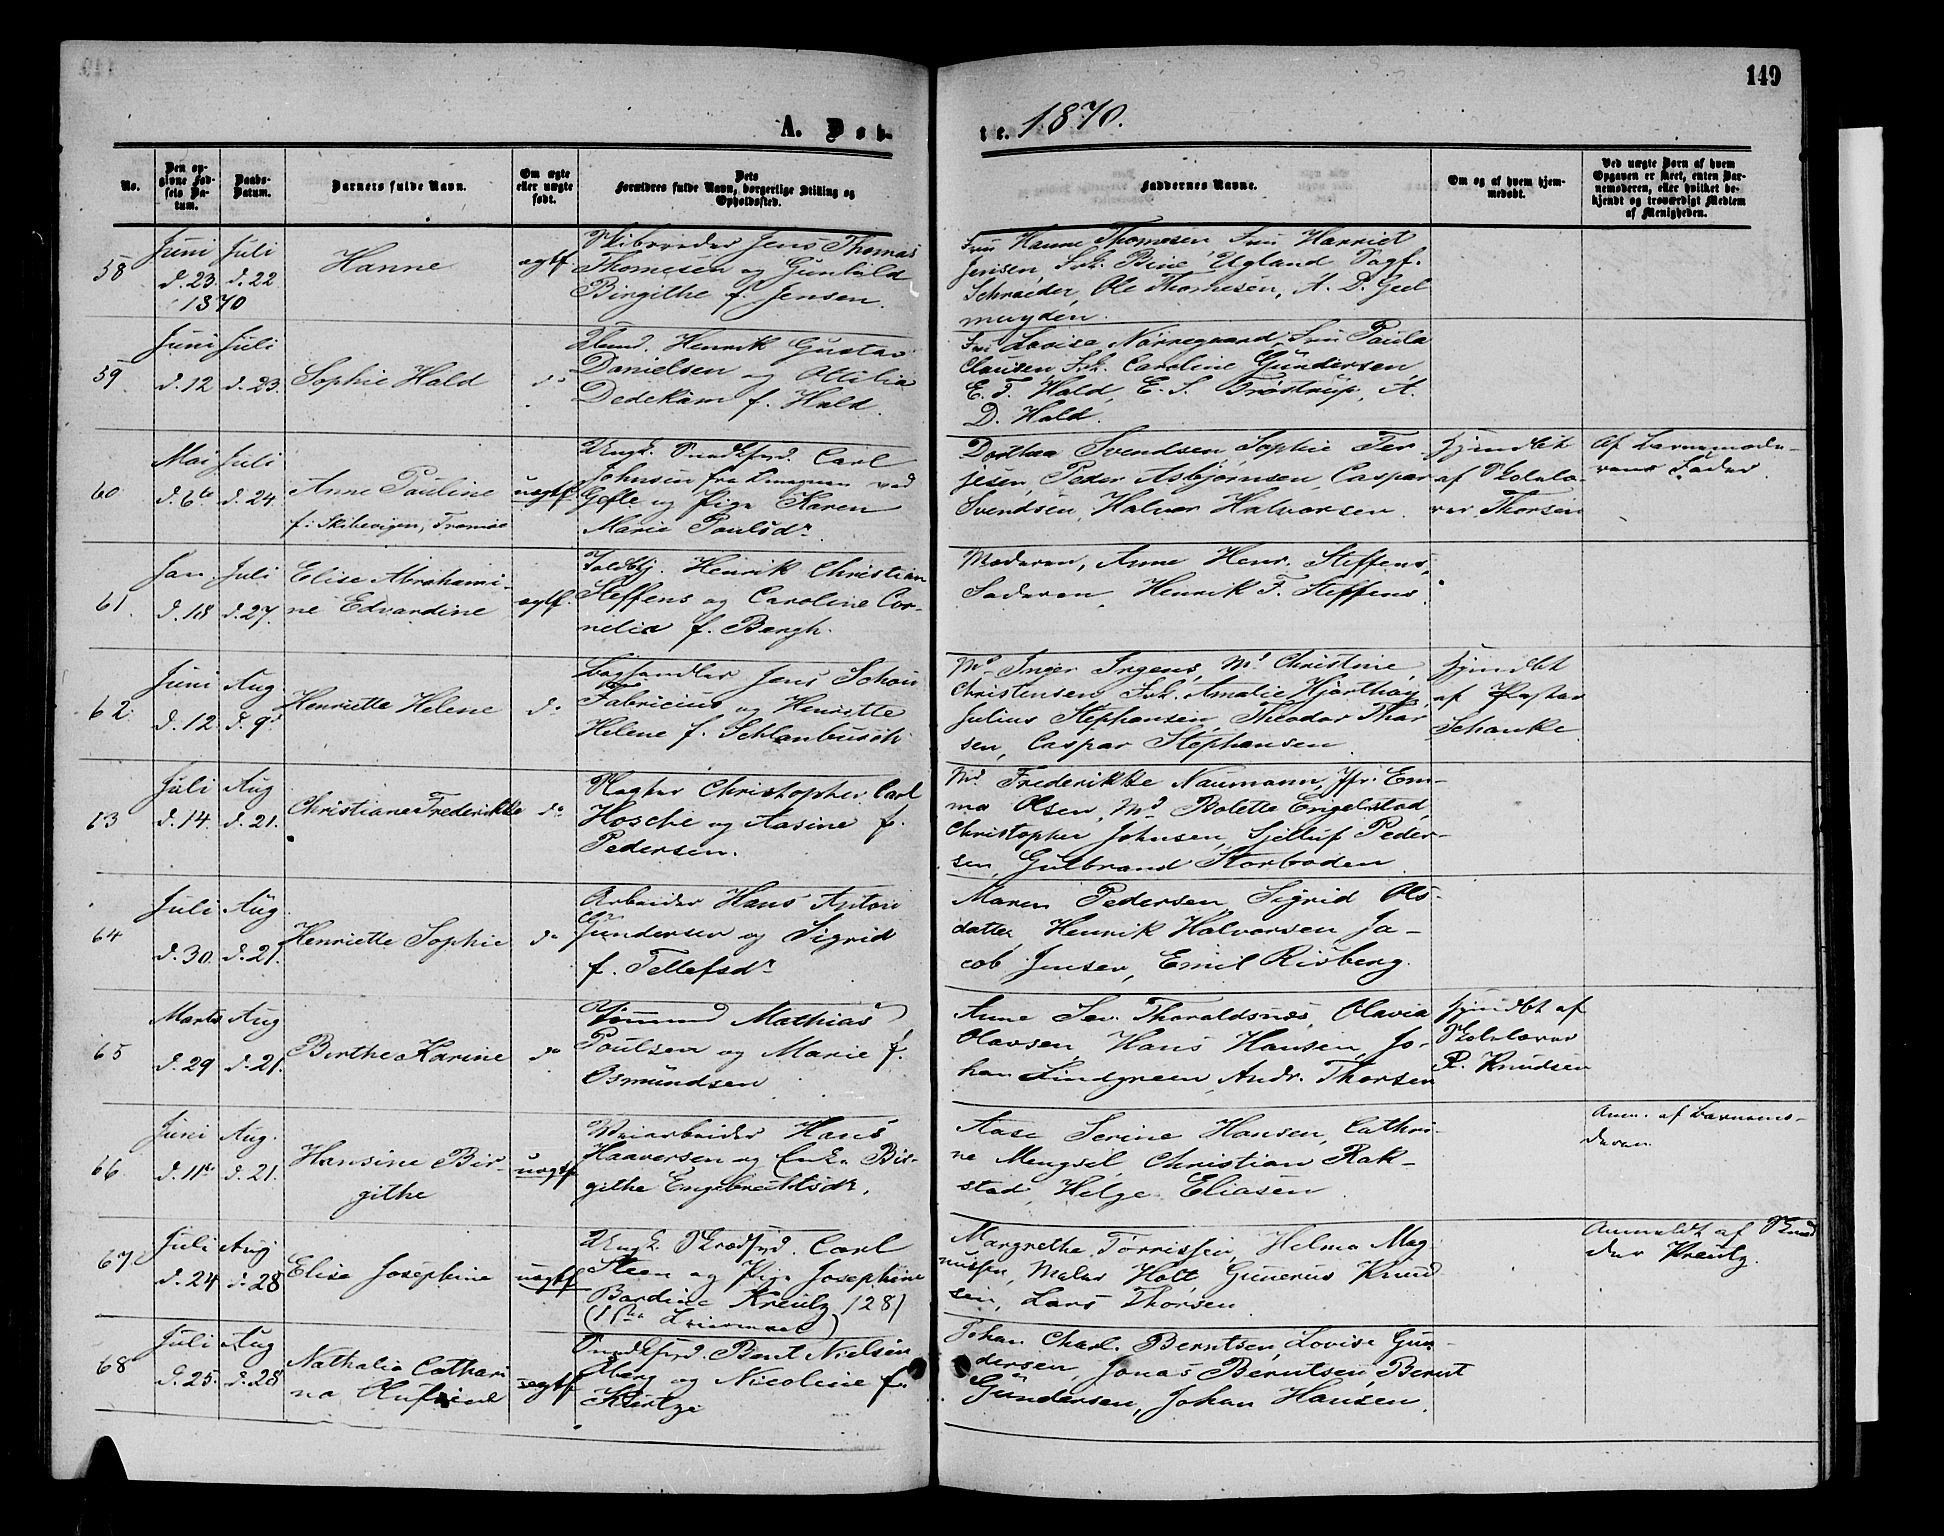 149
A. Døb-
te. 1870.
No.
Den op-
givne Fød-
sels Da-
tum.
Daabs-
Datum.
Barnets fulde Navn.
Om ægte
eller uægte
født.
Dets
Forældres fulde Navn, borgerlige Stilling og
Opholdssted.
Faddernes Navne.
Om og af hvem hjem-
medøbt.
Ved uægte Børn af hvem
Opgaven er skeet, enten Bar-
nemoderen, eller hvilket be-
kjendt og troværdigt Medlem
af Menigheden.
58
Juni
d. 23
1870
Juli
d. 22
Hanne
ægtf
Skibsreder Jens Thomas
Thomesen og Gunhild
Birgithe f. Jensen.
Fru Hanne Thomesen, Fru Harriet
Jensen, Frk. Bine Ugland, Sagf.
Schrøeder, Ole Thomesen, A. D. Geel
muyden.
59
Juni
d. 12
Juli
d. 23.
Sophie Hald
do
Henrik Gustav
Danielsen og Ottilia
Dedekam f. Hald.
Fru Lovise Nørregaard, Fru Paula
Clausen, Frk. Caroline Gundersen,
E. T. Hald, E. S. Trøstrup, A.
D. Hald.
60
Mai
d. 6te
Juli
d. 24.
Anne Pauline
f. i Skilsvigen, Tromøe
uægtf
Ungk. Snedkersv. Carl
Johnsen fra ved
Gefle og Pige Karen
Marie Poulsdr.
Dorthea Svendsen, Sophie Ter
jesen, Peder Asbjørnsen, Caspar
Svendsen, Halvor Halvorsen.
Hjemdøbt
af Skolelæ-
rer Thorsen
Af Barnemode-
rens Fader.
61.
Jan
d. 18
Juli
d. 27.
Elise Abrahami-
ne Edvardine
ægtf.
Toldbtj. Henrik Christian
Steffens og Caroline Cor-
nelia f. Bergh.
Moderen, Anne Henr. Steffens,
Faderen, Henrik F. Steffens.
62.
Juni
d. 12.
Aug
d. 9d
Henriette Helene
do
Boghandler Jens Schou
Fabricius og Henriette
Helene f. Schlanbusch
Md. Inger Ingens, Md. Christine
Christensen, Frk. Amalie Hjorthøy,
Julius Stephansen, Theodor Thor
sen, Caspar Stephansen.
Hjemdøbt
af Pastor
Schanke.
63
Juli
d. 14.
Aug
d. 21.
Christiane Frederikke
do
Slagter Christopher Carl
Hosche og Aasine f.
Pedersen.
Md. Frederikke Naumann, Jfr. Em-
ma Olsen, Md. Bolette Engelstad,
Christopher Johnsen, Peder-
sen, Gulbrand Storboden
64
Juli
d. 30.
Aug
d. 21.
Henriette Sophie
do
Arbeider Hans Anton
Gundersen og Sigrid
f. Tellefsdr.
Maren Pedersen, Sigrid Ols-
datter, Henrik Halvorsen, Ja-
cob Jensen, Emil Risberg.
65
Marts
d. 29
Aug
d. 21.
Birthe Karine
do
Tømmermd Mathias
Poulsen og Marie f.
Osmundsen
Anne Sev. Thoraldsnæs, Olavia
Olavsen, Hans Hansen, Jo-
han Lindgreen, Andr. Thorsen
Hjemdøbt af
Skolelærer
P. Knudsen
66.
Juni
d. 11te
Aug.
d. 21.
Hansine Bir-
githe
uægtf
Veiarbeider Hans
Haaversen og Enke Bir-
githe Engebrechtsdr.
Aase Serine Hansen, Cathri-
ne Mengsil, Christian Rak-
stad, Helge Eliasen.
Anm. af Barnemo-
deren
67
Juli
d. 24
Aug
d. 28
Elise Josephine
uægtf
Ungk. Skrædsvd. Carl
Steen og Pige Josephine
Bardine Kreutz (28)
(1ste Leiermaal)
Margrethe Tørrissen, Helma Mag
nussen, Maler Holt, Gunerus Knud
sen, Lars Thorsen.
Anmeldt af
Kreutz.
68
Juli
d. 25.
Aug
d. 28
Nathalia Cathari
na Rufine
uægtf
Snedkersvd. Bent Nielsen
Aberg og Nicoline f.
Kiertze
Johan Charl. Berntsen, Lovise Gun-
dersen, Jonas Berntsen, Bernt
Gundersen, Johan Hansen.